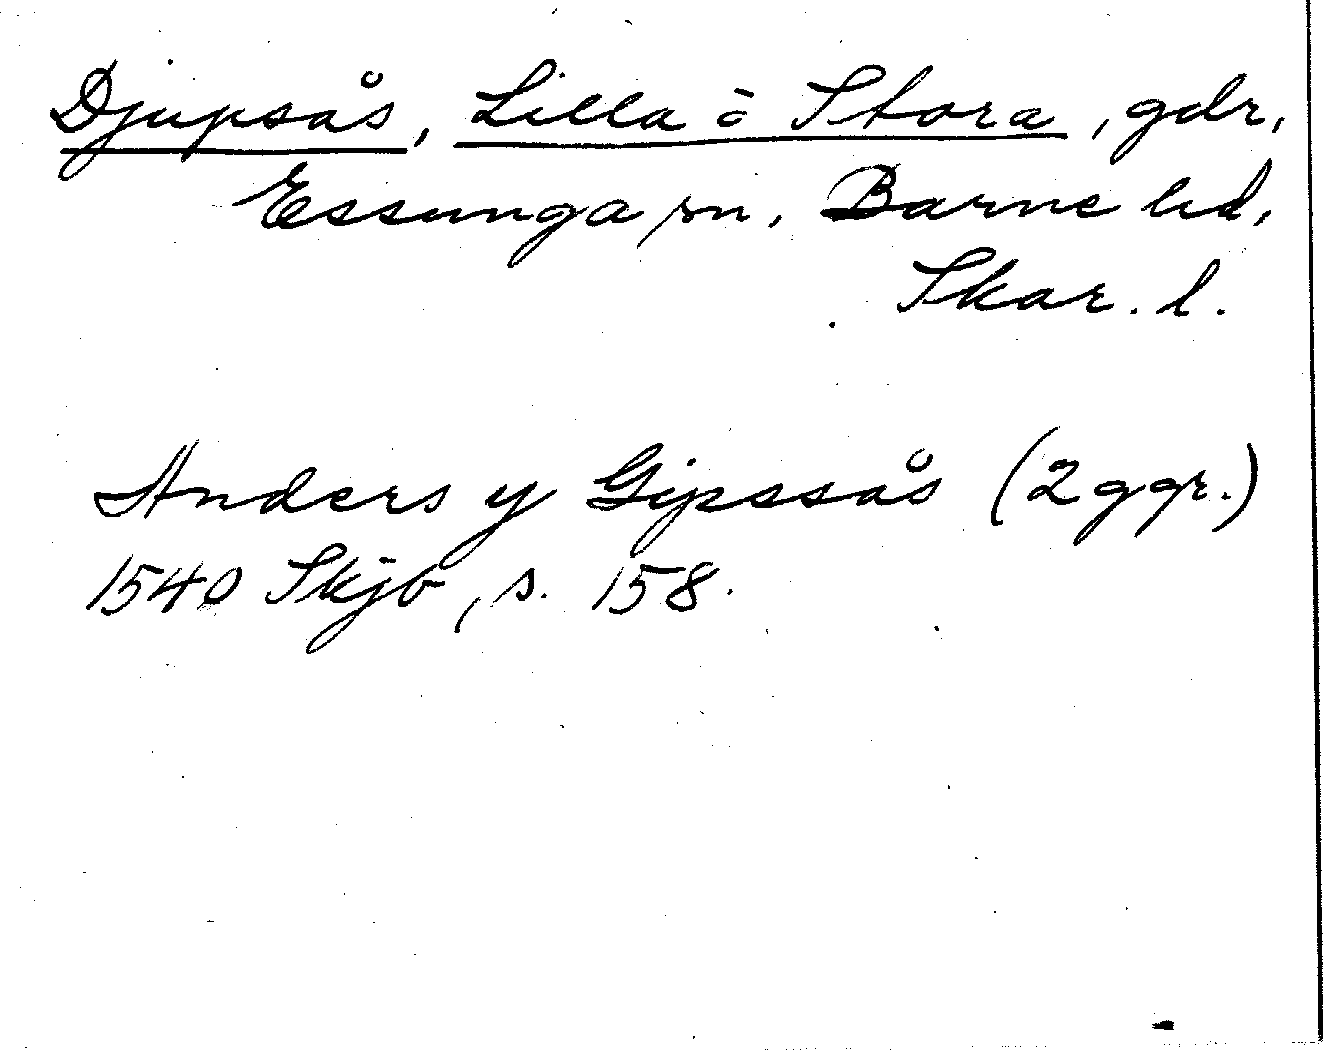 Djupsås, Lilla o Stora, gdr,
Essunga sn, Barne hd,
Skar. l.
Anders y Gipssås (2 ggr.)
1540 Skjb, s. 158.